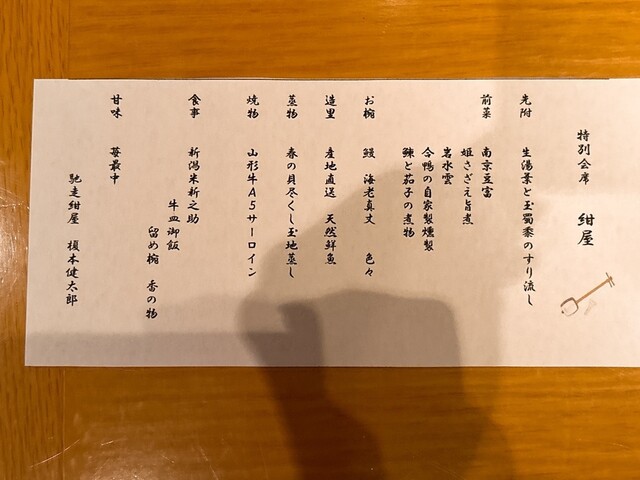 特別会席 紺屋
先附 生湯葉と玉蜀黍のすり流し
前菜 南京豆富
姫さざえ旨煮
岩水雲
合鴨の自家製燻製
鰊と茄子の煮物
お椀 鰻 海老真丈 色々
造里 産地直送 天然鮮魚
蒸物 春の貝尽くし玉地蒸し
焼物 山形牛A5サーロイン
食事 新潟米新之助
牛皿御飯
留め椀 香の物
甘味 苺最中
馳走紺屋 榎本健太郎